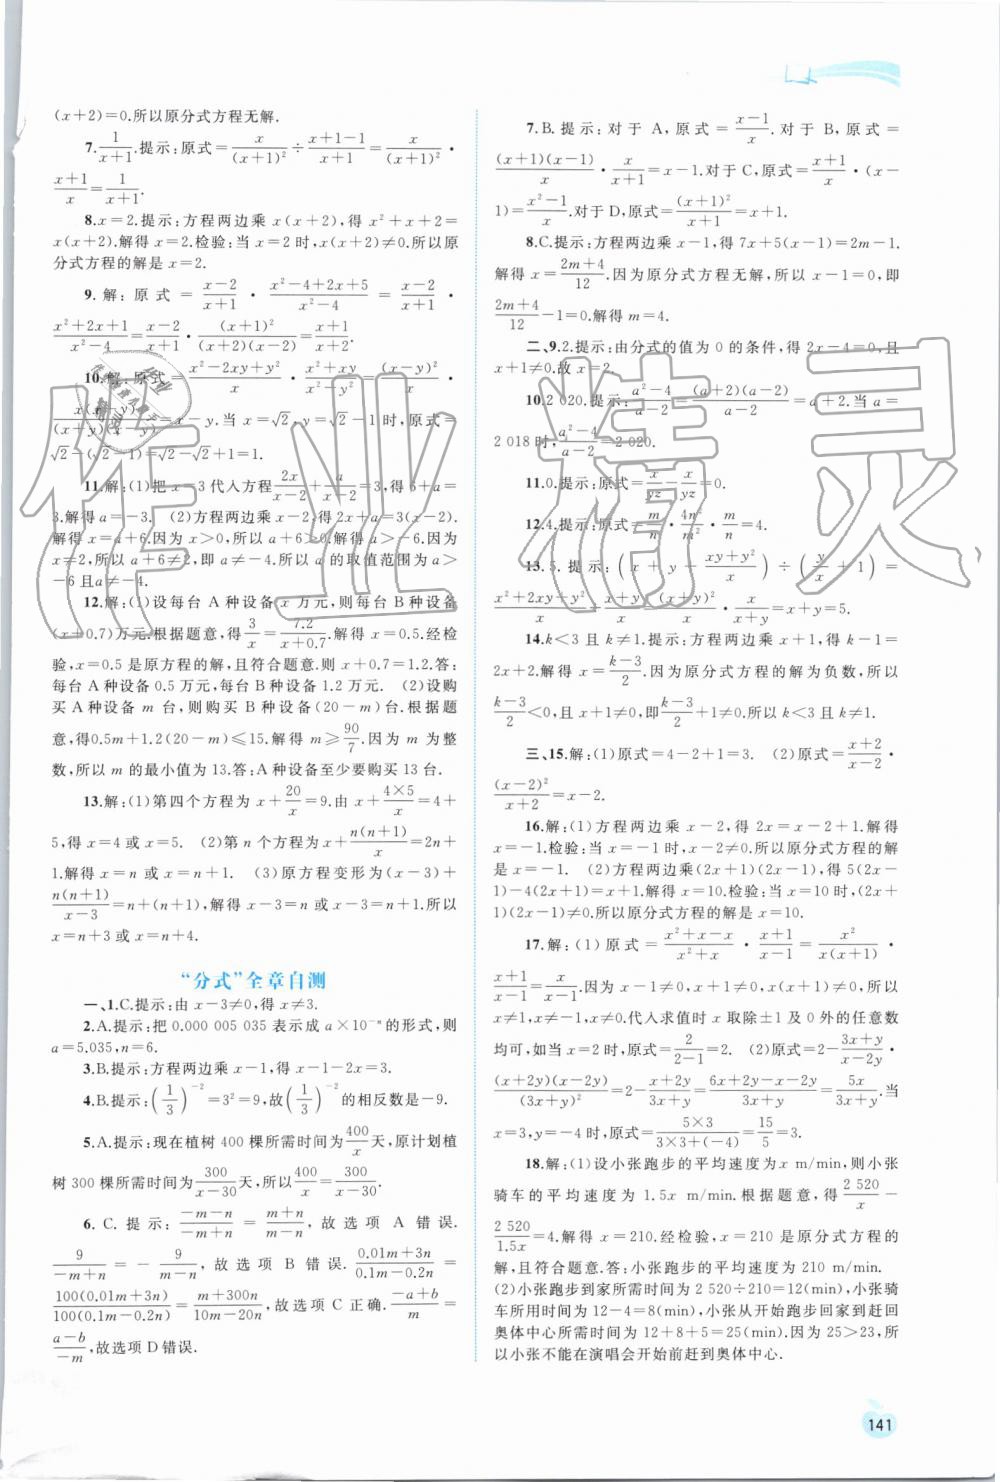 (x+2)=0.所以原分式方程无解.
7.1/(x+1).提示:原式=x/(x+1)²÷(x+1-1)/(x+1)=x/(x+1)²·
(x+1)/x=1/(x+1).
8.x=2.提示:方程两边乘 x(x+2),得 x²+x+2=
x(x+2).解得 x=2.检验:当 x=2 时,x(x+2)≠0.所以原
分式方程的解是 x=2.
9.解:原式=(x-2)/(x+1)·(x²-4+2x+5)/(x²-4)=(x-2)/(x+1)·
(x²+2x+1)/(x²-4)=(x-2)/(x+1)·(x+1)²/((x+2)(x-2))=(x+1)/(x+2).
10.解:原式=(x²-2xy+y²)/x÷(x²+xy)/(x
y.当 x=√2,y=√2-1 时,原式=
√2-(√2-1)=√2-√2+1=1.
11.解:(1)把 x=3代入方程2x/(x-2)+a/(x-2)=3,得6+a=
3.解得 a=-3. (2)方程两边乘 x-2,得 2x+a=3(x-2).
解得 x=a+6.因为 x>0,所以 a+6>0.解得 a>-6.因为
x≠2,所以 a+6≠2,即 a≠-4.所以 a 的取值范围为 a>
-6 且a≠-4.
12.解:(1)设每台 A 种设备 x 万元,则每台 B 种设备
(x+0.7)万元.根据题意,得3/x=7.2/(x+0.7).解得 x=0.5.经检
验,x=0.5 是原方程的解,且符合题意.则 x+0.7=1.2.答:
每台 A种设备 0.5 万元,每台 B种设备 1.2 万元. (2)设购
买 A种设备 m 台,则购买 B种设备(20-m)台.根据题
意,得0.5m+1.2(20-m)≤15.解得 m≥90/7.因为 m 为整
数,所以 m 的最小值为 13.答:A种设备至少要购买 13 台.
13.解:(1)第四个方程为 x+20/x=9.由 x+(4×5)/x=4+
5,得 x=4 或 x=5. (2)第 n 个方程为 x+n(n+1)/x=2n+
1.解得 x=n 或 x=n+1. (3)原方程变形为(x-3)+
n(n+1)/(x-3)=n+(n+1),解得 x-3=n 或 x-3=n+1.所以
x=n+3 或 x=n+4.
“分式”全章自测
一、1.C.提示:由 x-3≠0,得 x≠3.
2.A.提示:把 0.000 005 035 表示成 a×10⁻ⁿ 的形式,则
a=5.035,n=6.
3.B.提示:方程两边乘 x-1,得 x-1-2x=3.
4.B.提示:(1/3)⁻²=3²=9,故(1/3)⁻² 的相反数是-9.
5.A.提示:现在植树 400 棵所需时间为400/x天,原计划植
树 300 棵所需时间为300/(x-30)天,所以400/x=300/(x-30).
6. C. 提示:(-m-n)/(-m+n)=(m+n)/(m-n),故选项 A 错误.
9/(-m+n)=-9/(m-n),故选项 B 错误.(0.01m+3n)/(0.1m-0.2n)=
100(0.01m+3n)/(100(0.1m-0.2n))=(m+300n)/(10m-20n),故选项 C 正确.(-a+b)/m=
(a-b)/(-m),故选项 D错误.
7.B.提示:对于 A,原式=(x-1)/x.对于 B,原式=
(x+1)(x-1)/x·x/(x+1)=x-1.对于C,原式=(x+1)/x·(x-
1)=(x²-1)/x.对于 D,原式=(x+1)²/(x+1)=x+1.
8.C.提示:方程两边乘 x-1,得 7x+5(x-1)=2m-1.
解得 x=(2m+4)/12.因为原分式方程无解,所以 x-1=0,即
(2m+4)/12-1=0.解得 m=4.
二、9.2.提示:由分式的值为 0 的条件,得 2x-4=0,且
x+1≠0.故 x=2.
10.2 020.提示:(a²-4)/(a-2)=(a+2)(a-2)/(a-2)=a+2.当 a=
2 018 时,(a²-4)/(a-2)=2 020.
11.0.提示:原式=x/yz-x/yz=0.
12.4.提示:原式=m/n·4n²/m²·m/n=4.
13.5. 提示:(x+y+(xy+y²)/x)÷(y/x+1)=
(x²+2xy+y²)/x·x/(x+y)=x+y=5.
14.k<3 且 k≠1.提示:方程两边乘 x+1,得 k-1=
2x+2.解得 x=(k-3)/2.因为原分式方程的解为负数,所以
(k-3)/2<0,且 x+1≠0,即(k-3)/2+1≠0.所以 k<3 且 k≠1.
三、15.解:(1)原式=4-2+1=3. (2)原式=(x+2)/(x-2)·
(x-2)²/(x+2)=x-2.
16.解:(1)方程两边乘 x-2,得 2x=x-2+1.解得
x=-1.检验:当 x=-1 时,x-2≠0.所以原分式方程的解
是 x=-1. (2)方程两边乘(2x+1)(2x-1),得 5(2x-
1)-4(2x+1)=1.解得 x=10.检验:当 x=10 时,(2x+
1)(2x-1)≠0.所以原分式方程的解是 x=10.
17.解:(1)原式=(x²+x-x)/(x²+x)·(x+1)/(x-1)=x²/(x(x+1))·
(x+1)/(x-1)=x/(x-1).因为 x-1≠0,x+1≠0,x(x+1)≠0,所以
x≠1,x≠-1,x≠0.代入求值时 x 取除±1 及 0 外的任意数
均可,如当 x=2 时,原式=2/(2-1)=2. (2)原式=2-(3x+y)/(x-2y)·
(x+2y)(x-2y)/(3x+y)²=2-(x+2y)/(3x+y)=(6x+2y-x-2y)/(3x+y)=5x/(3x+y).当
x=3,y=-4 时,原式=(5×3)/(3×3+(-4))=15/5=3.
18.解:(1)设小张跑步的平均速度为 x m/min,则小张
骑车的平均速度为 1.5x m/min.根据题意,得2 520/x-
2 520/1.5x=4.解得 x=210.经检验,x=210 是原分式方程的
解,且符合题意.答:小张跑步的平均速度为 210 m/min.
(2)小张跑步到家所需时间为 2 520÷210=12(min),小张骑
车所用时间为 12-4=8(min),小张从开始跑步回家到赶回
奥体中心所需时间为 12+8+5=25(min).因为 25>23,所
以小张不能在演唱会开始前赶到奥体中心.
141
作业精灵